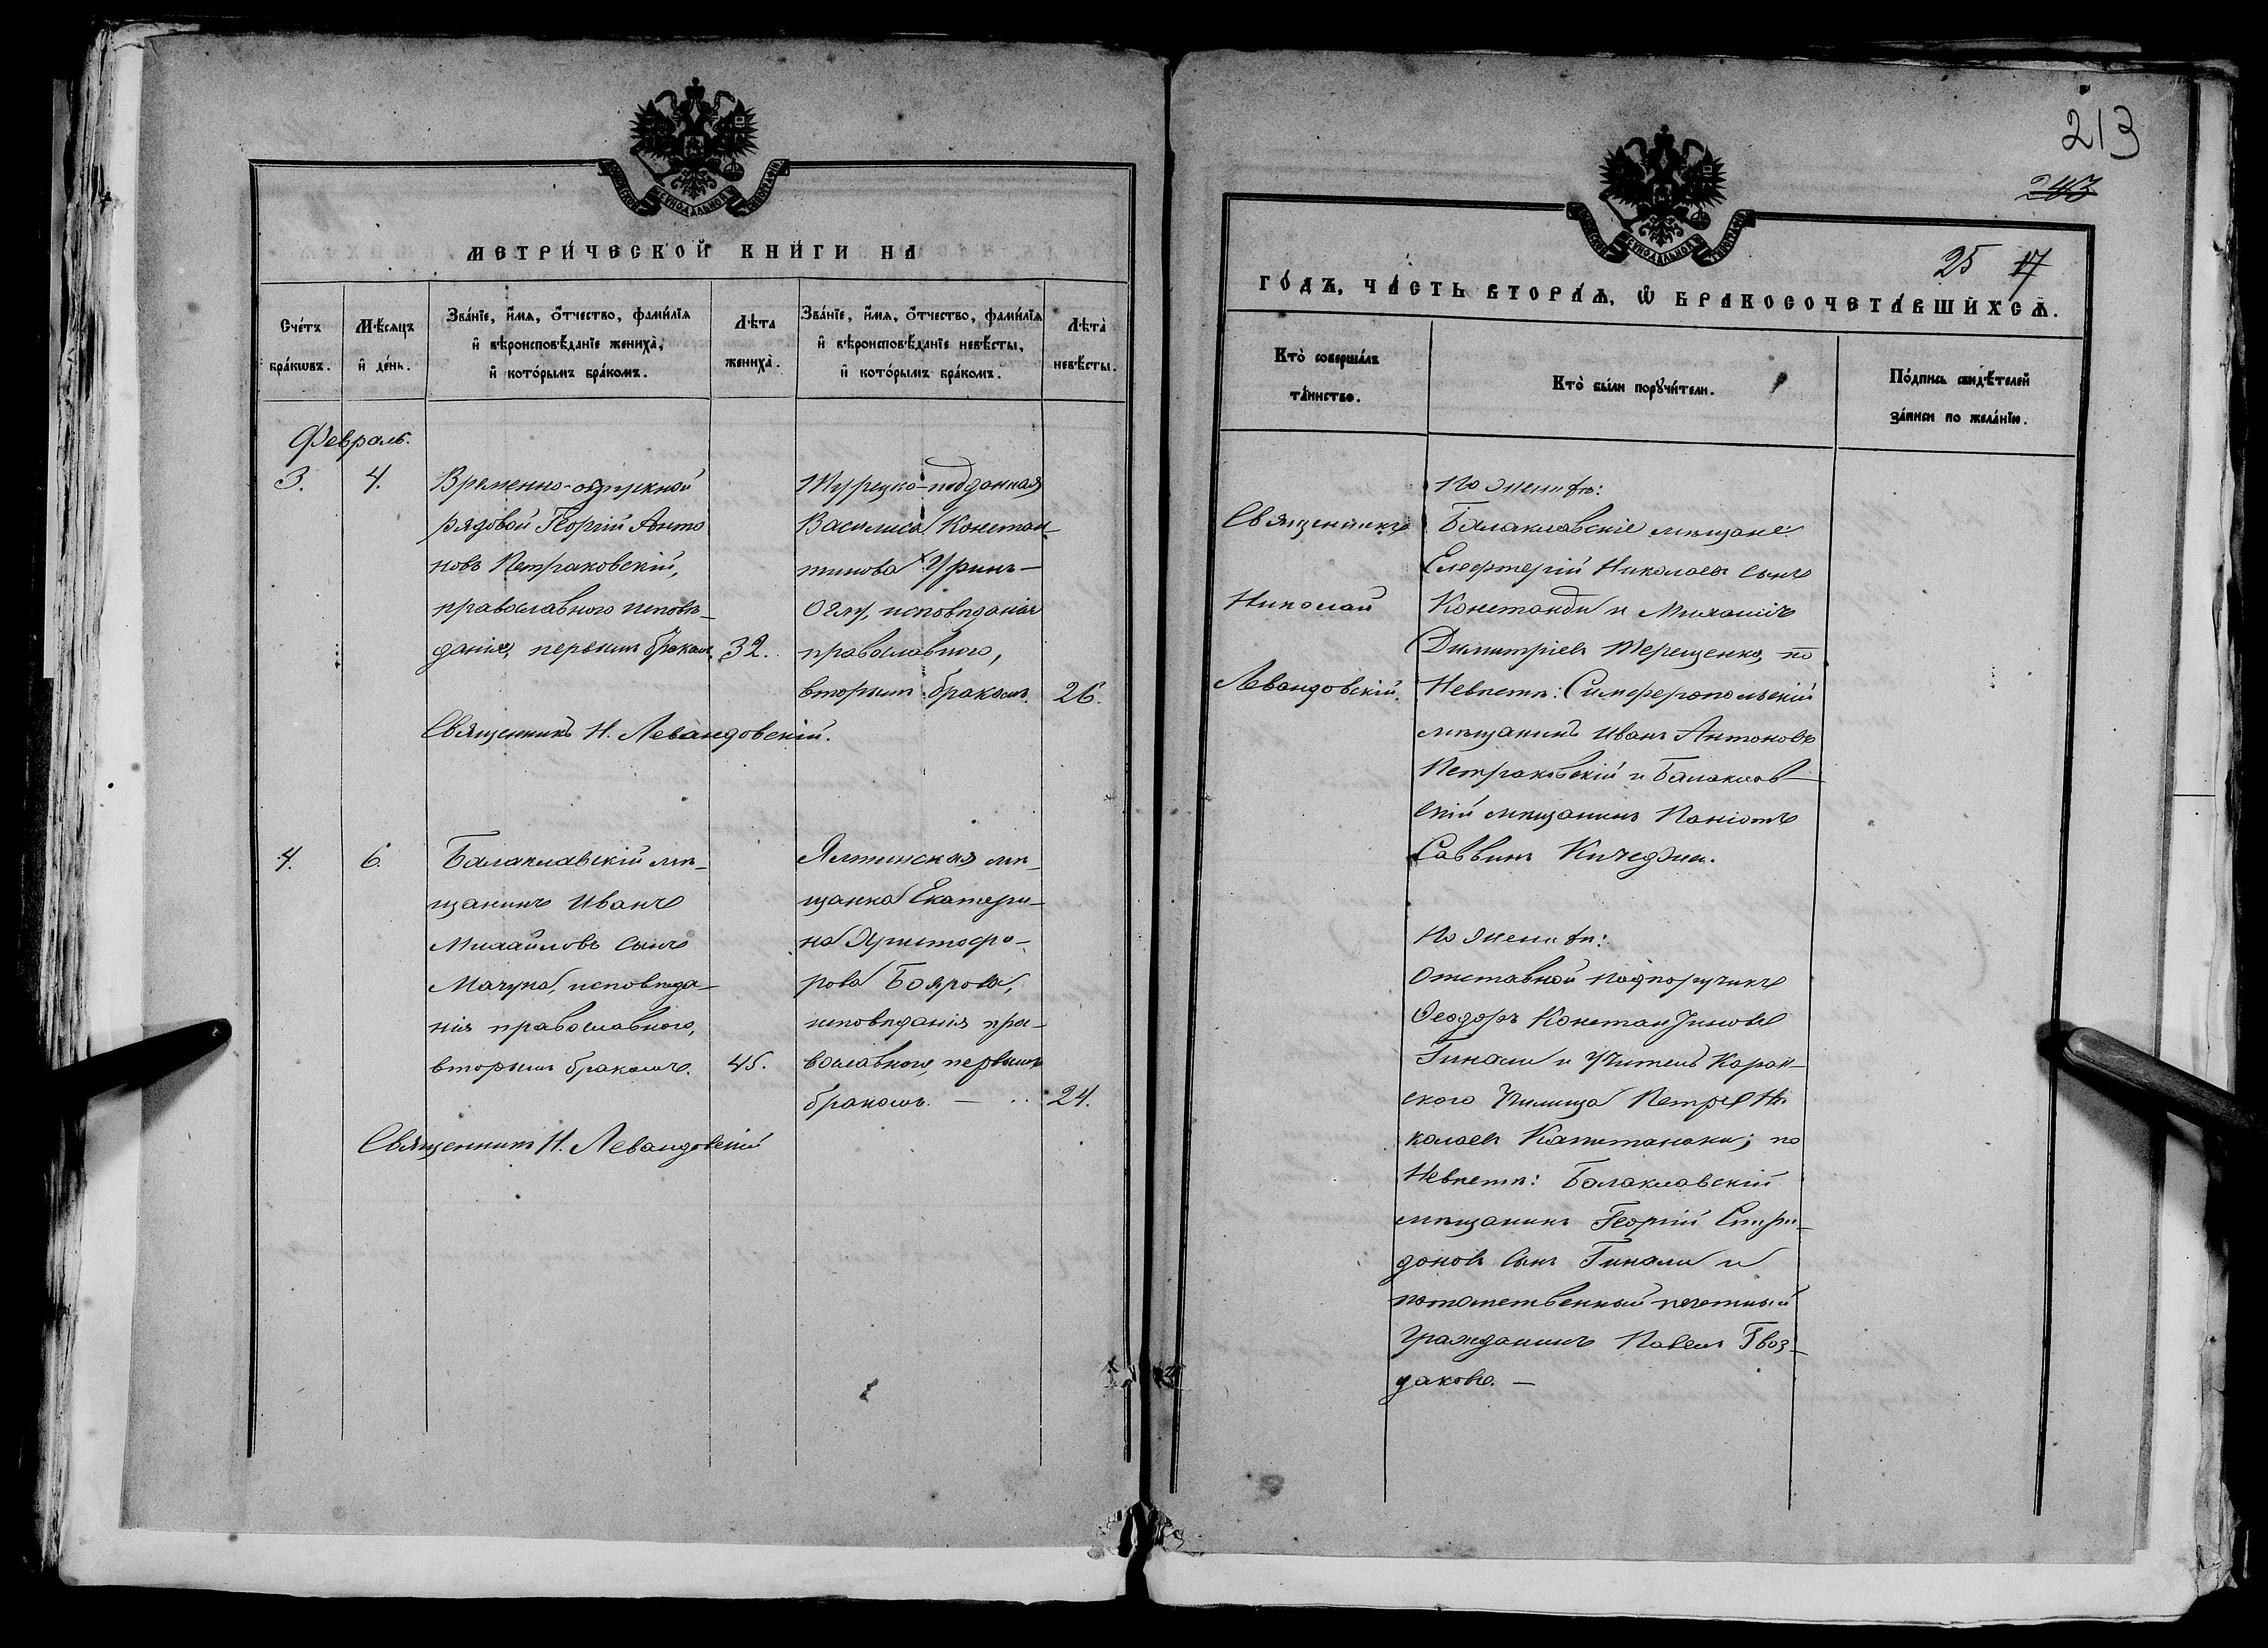 МЕТРИЧЕСКОЙ КНИГИ НА
Счетъ браковъ.
Мѣсяцъ и день.
Званіе, имя, отчество, фамилія и вѣроисповѣданіе жениха, и которымъ бракомъ.
Лѣта жениха.
Званіе, имя, отчество, фамилія и вѣроисповѣданіе невѣсты, и которымъ бракомъ.
Лѣта невѣсты.
Февраль.
3.
4.
Временно-отпускной
рядовой Георгій Анто
новъ Петраковскій,
православнаго исповѣ-
данія, первымъ бракомъ.
32.
Турецко-подданная
Василиса Констан-
тинова Уринъ-
Оглу, исповѣданія
православнаго,
вторымъ бракомъ.
26.
Священникъ Н. Левандовскій.
4.
6.
Балаклавскій мѣ-
щанинъ Иванъ
Михайловъ сынъ
Мачука, исповѣда-
нія православнаго,
вторымъ бракомъ.
45.
Ялтинская мѣ-
щанка Екатери-
на Христофо-
рова Боярова,
исповѣданія пра-
вославнаго, первымъ
бракомъ. —
24.
Священникъ Н. Левандовскій
213
243
25 17
ГОДЪ, ЧАСТЬ ВТОРАЯ, Ѡ БРАКОСОЧЕТАВШИХСЯ.
Кто совершалъ таинство.
Кто были поручители.
Подпись свидѣтелей записи по желанію.
Священникъ
Николай
Левандовскій.
По женихѣ:
Балаклавскіе мѣщане:
Елефтерій Николаевъ сынъ
Констанди и Михаилъ
Димитріевъ Терещенко, по
Невѣстѣ: Симферопольскій
мѣщанинъ Иванъ Антоновъ
Петраковскій и Балаклав-
скій мѣщанинъ Паніотъ
Саввинъ Кичеджи.
По женихѣ:
Отставной подпоручикъ
Ѳеодоръ Константиновъ
Гинали и Учитель Каран-
скаго Училища Петръ Ни
колаевъ Капитанаки; по
Невѣстѣ: Балаклавскій
мѣщанинъ Георгій Спири-
доновъ сынъ Гинали и
потомственный почетный
Гражданинъ Павелъ Гвоз-
даковъ. —